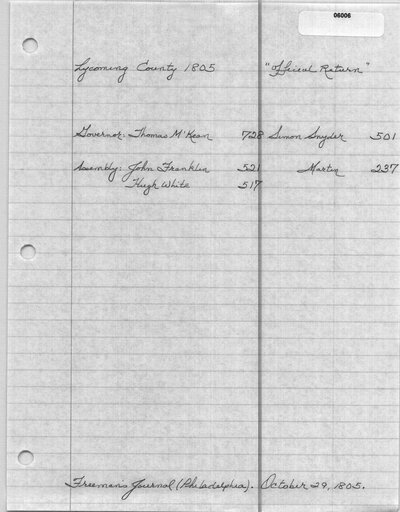 06006
Lycoming County 1805 "Official Return"
Governor: Thomas M'Kean 728 Simon Snyder 501
Assembly: John Franklin 521 Martin 237
Hugh White 517
Freeman's Journal (Philadelphia). October 29, 1805.